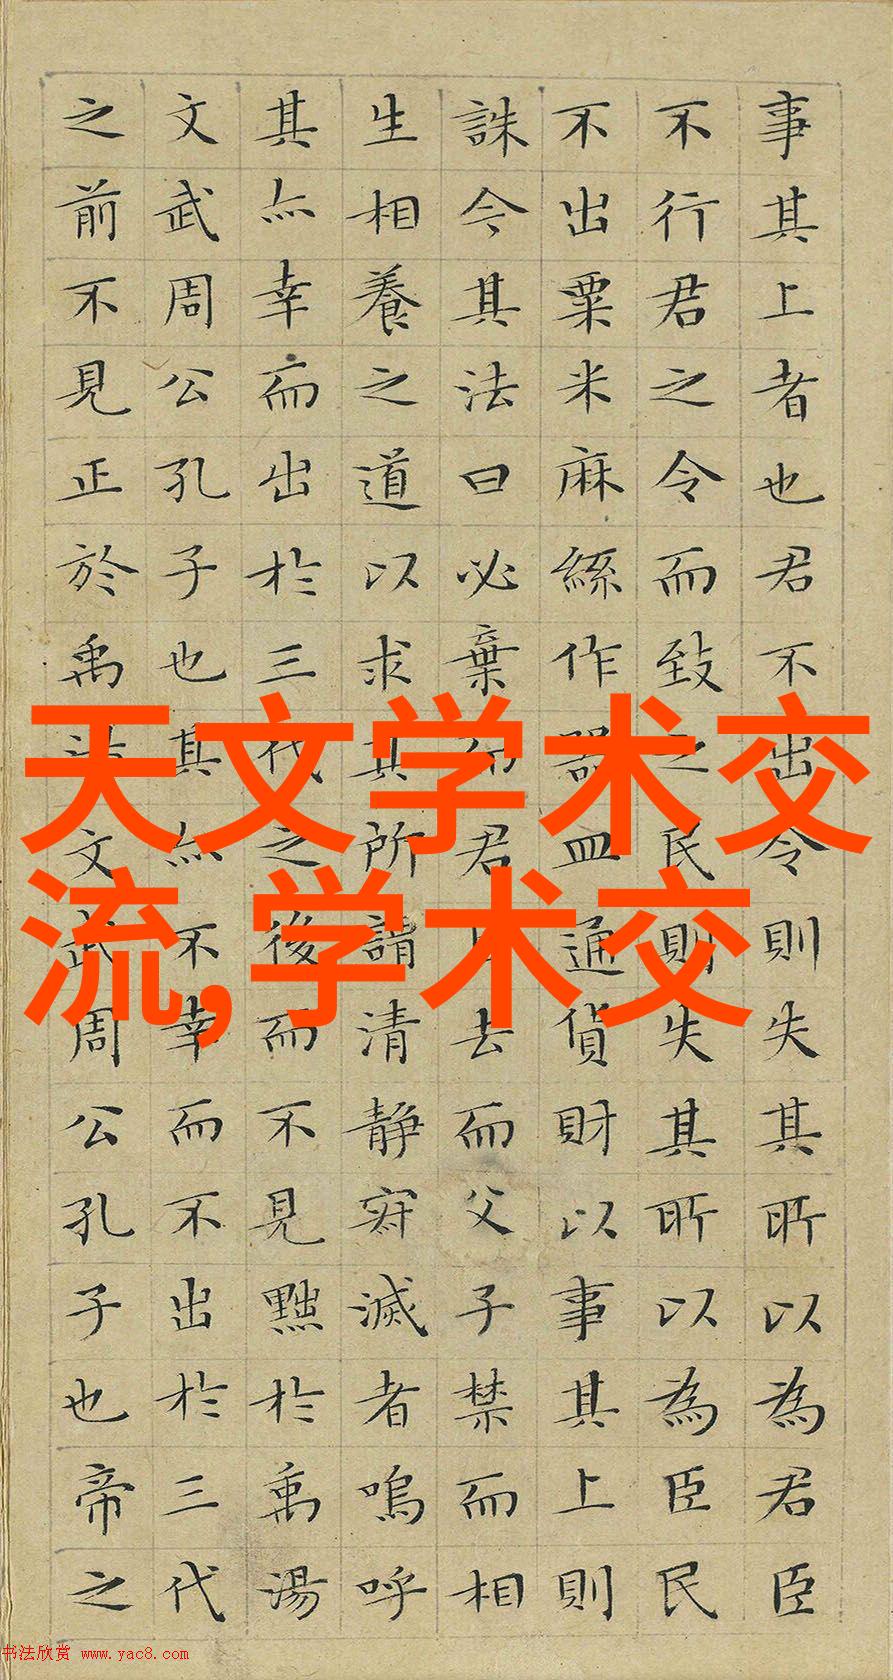 事其上者也君不出令則失其所以為君臣
不行君之令而致之民則失其所以為臣民
不出粟米麻絲作器皿通貨財以事其上則
誅今其法曰必棄而君去而父子禁而相
生相養之道以求其所謂清静寂滅者嗚呼
其亦幸而出於三代之後而不見黜於禹湯
文武周公孔子也其亦不幸而不出於三代
之前不見正於禹湯文武周公孔子也帝之
天文学术交
流,学术交
书法欣赏 www.yac8.com